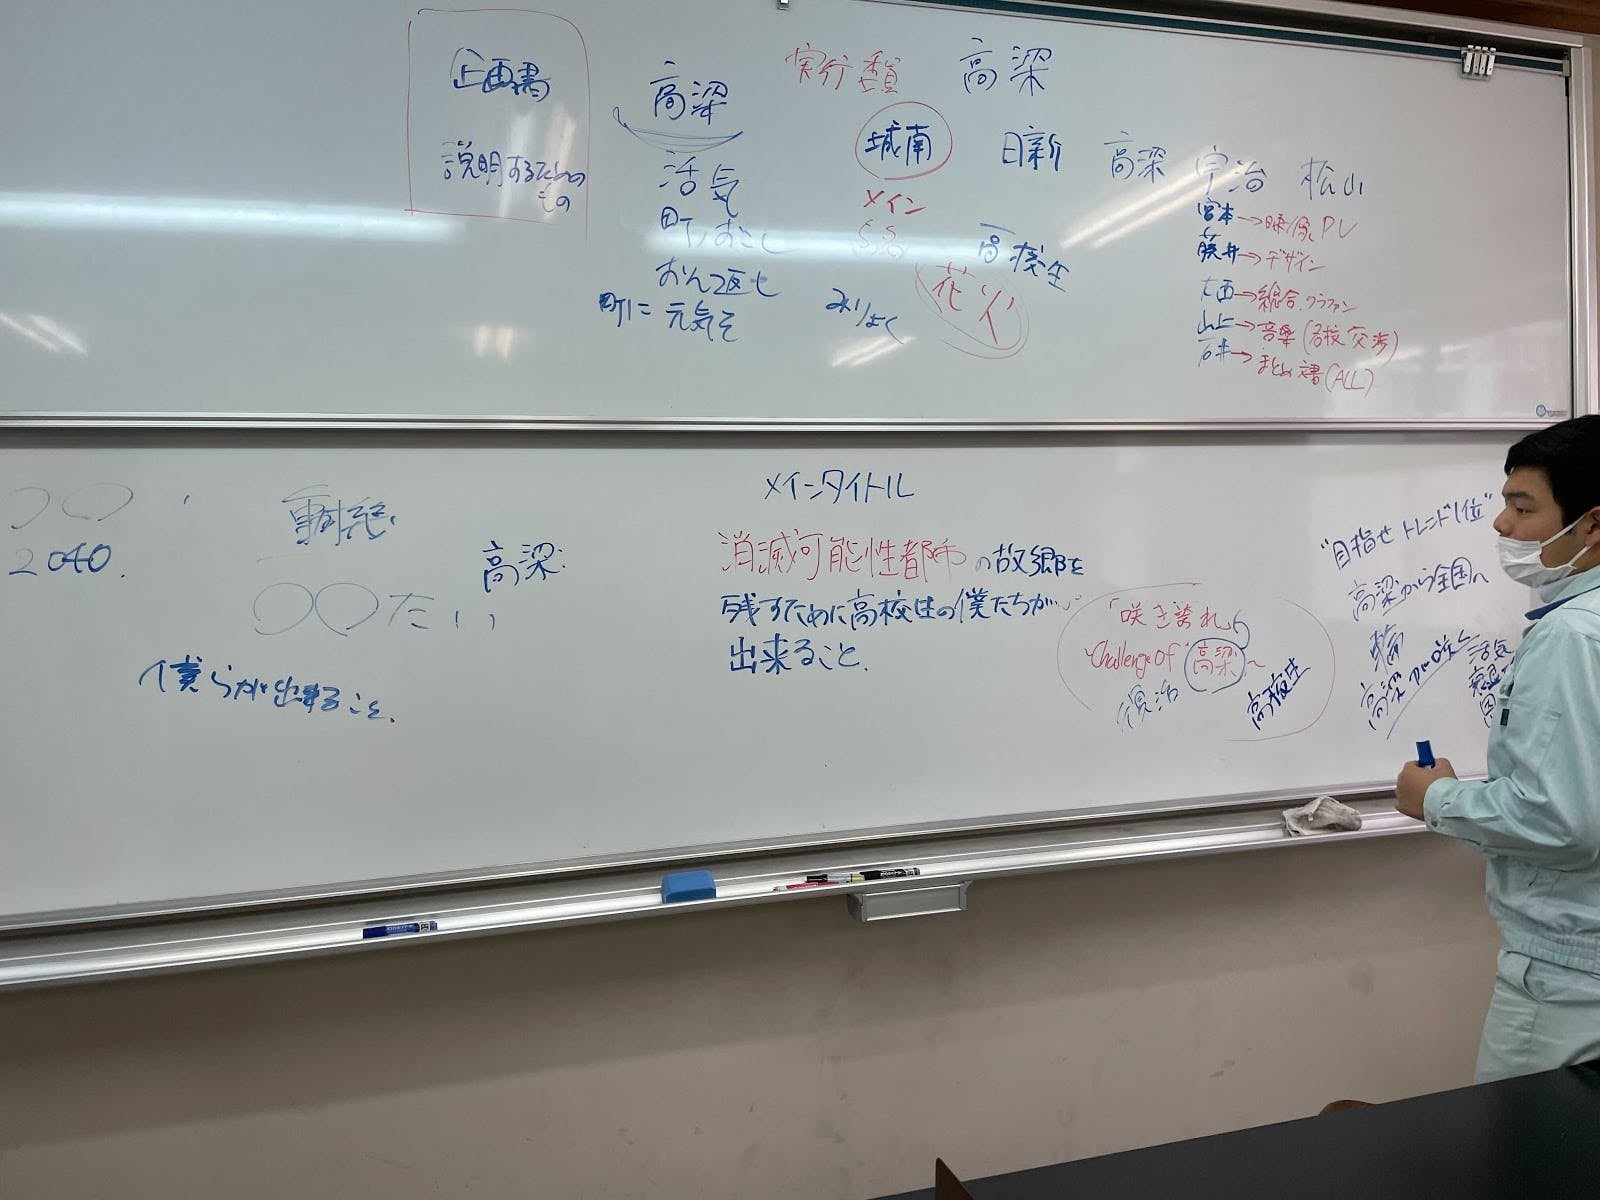 企画書
説明するための
もの
高梁
活気
町おこし
おん返し
町に元気を
実行委員
高梁
城南
日新
高梁
宇治
松山
メイン
高校生
花火
みりょく
宮本→映像PV
藤井→デザイン
大西→総合.クラファン
山上→音楽(各校交渉)
石井→まとめ書(ALL)
2040.
高梁
〇〇たい
僕らが出来ること、
メインタイトル
消滅可能性都市の故郷を
残すために高校生の僕たちが
出来ること.
「咲き誇れ
Challenge Of 高梁~
復活
高校生
"目指せトレンド1位"
高梁から全国へ
輪
高梁から咲く
活気